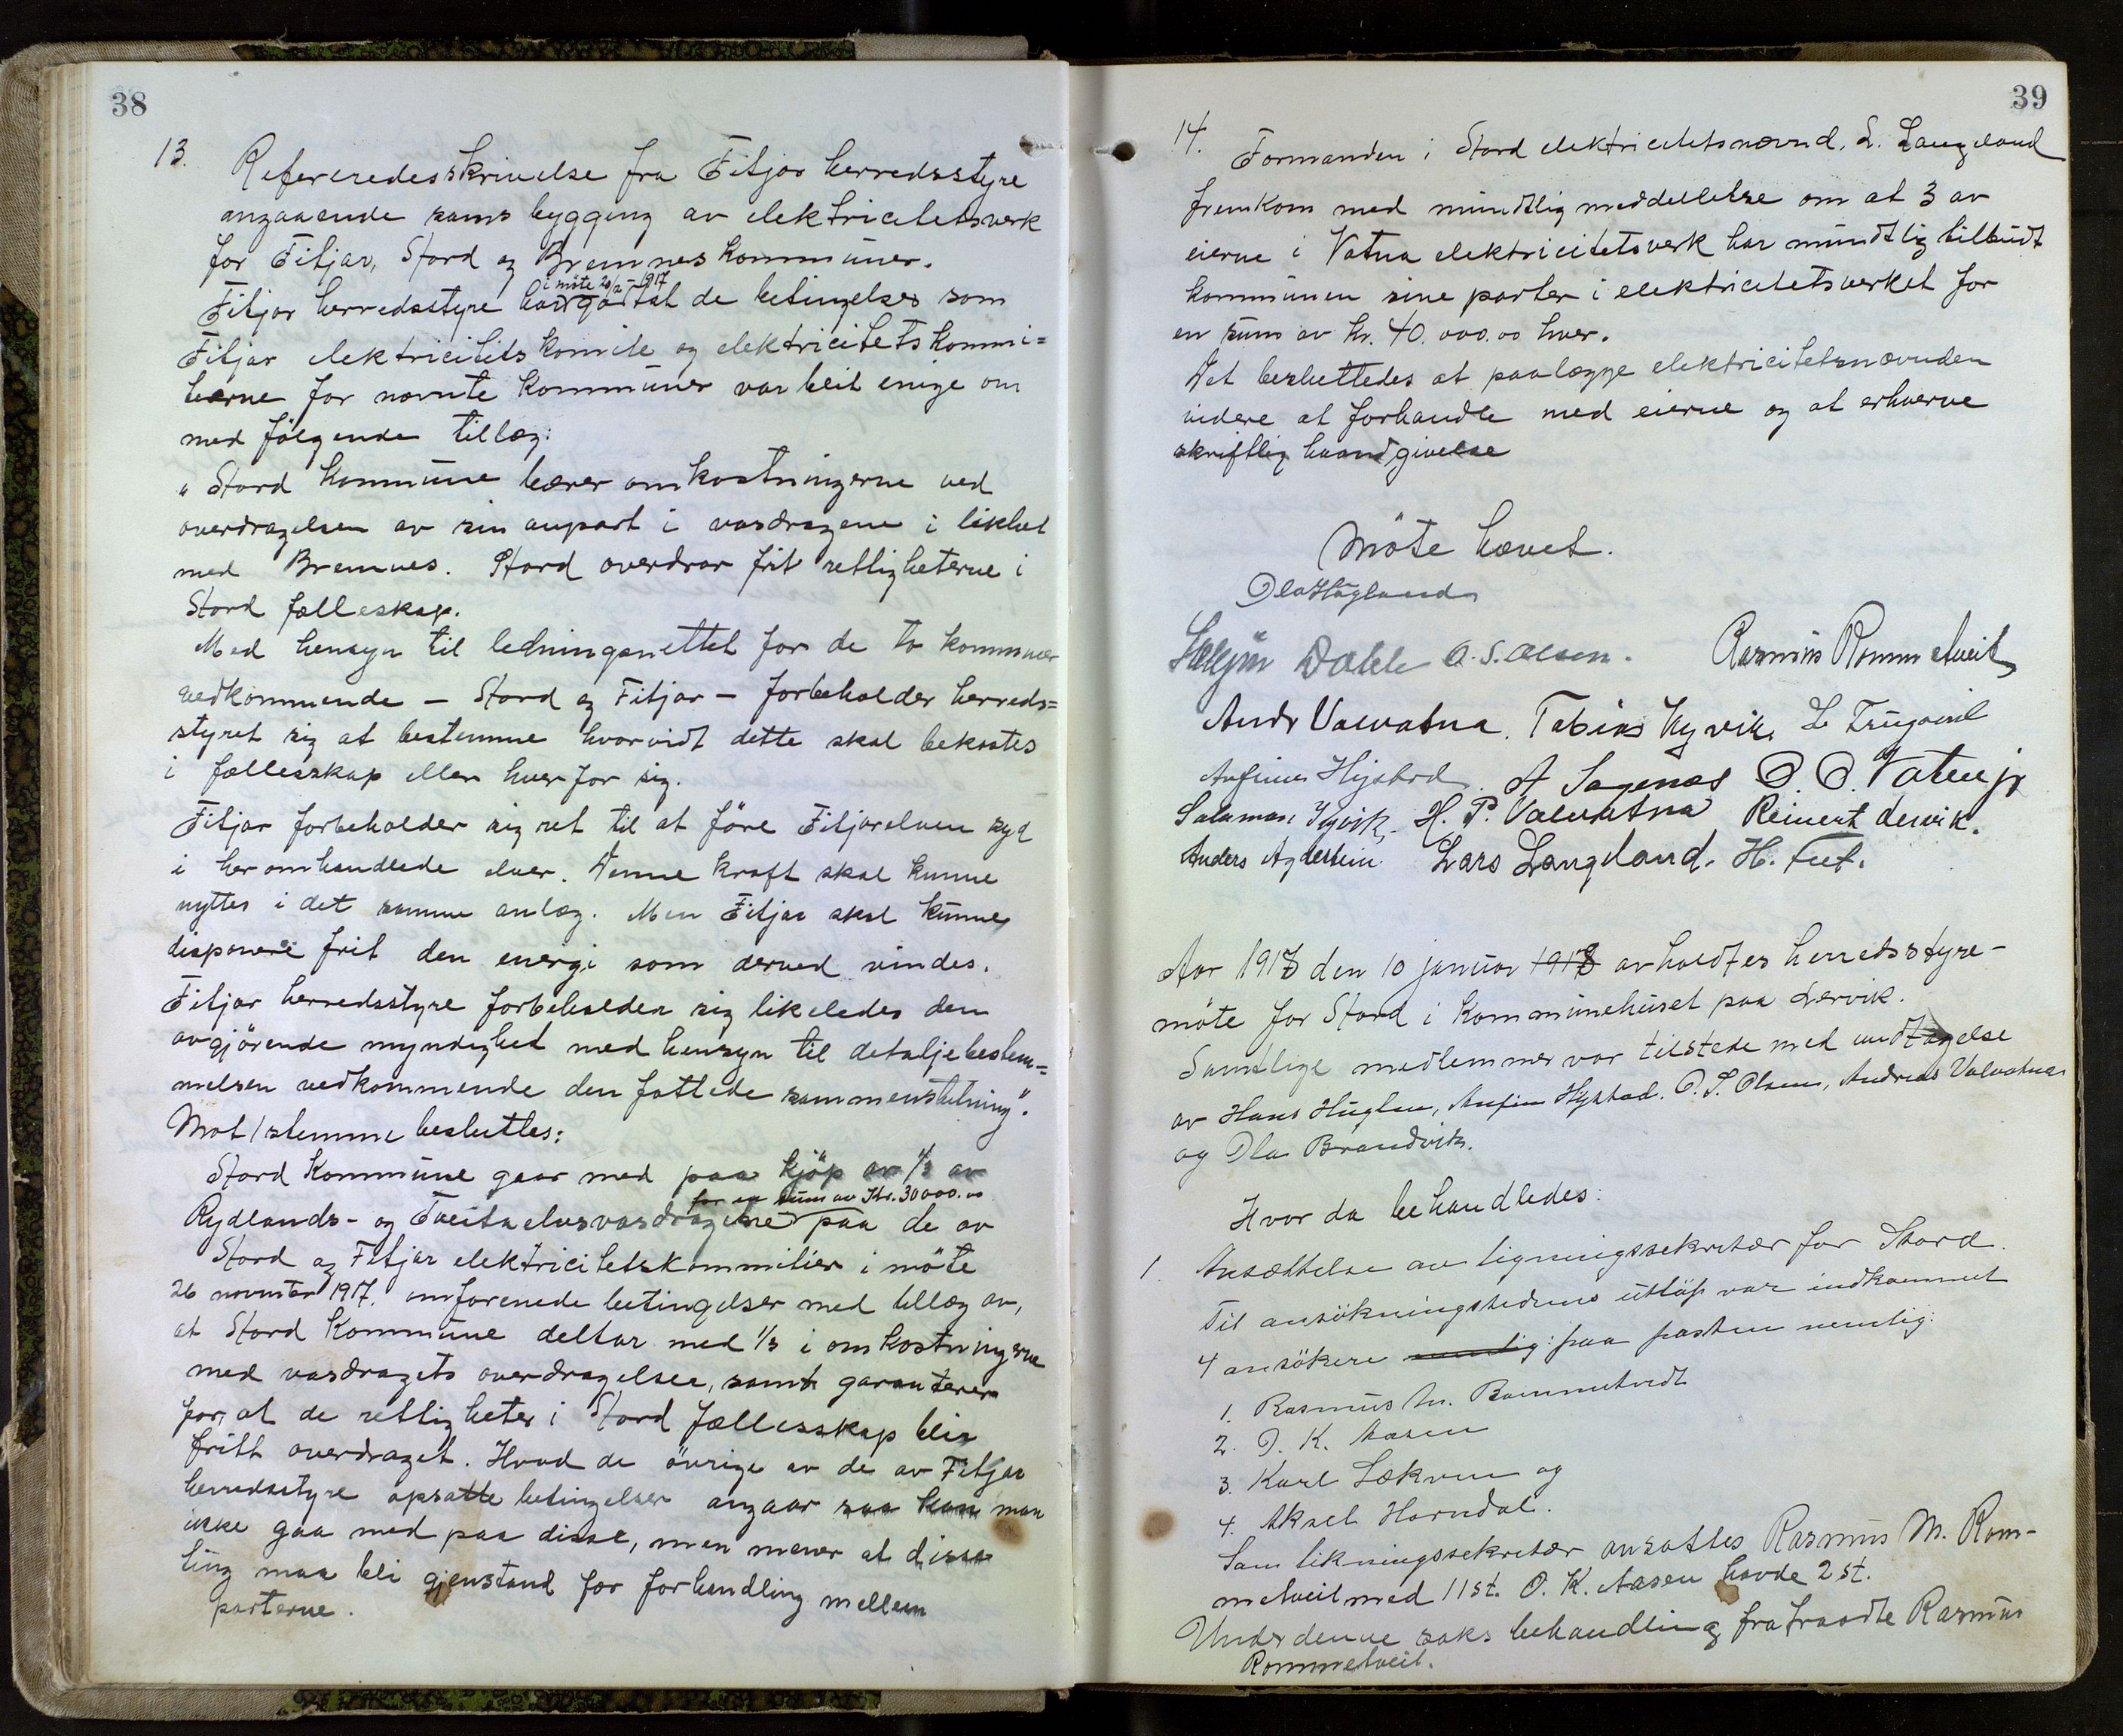 38
13. Refereredes skrivelse fra Fitjar herredsstyre
angaaende sams bygging av elektricitetsverk
for Fitjar, Stord og Bremnes kommuner.
i møte 20/12-1917
Fitjar herredsstyre har godtat de betingelser som
Fitjar elektricitets komite og elektricitetskommi=
teerne for nævnte kommuner var blit enige om
med følgende tillæg:
"Stord kommune bærer omkostningerne ved
overdragelsen av sin anpart i vasdragene i likhet
med Bremnes. Stord overdrar frit rettigheterne i
Stord fælleskap.
Med hensyn til ledningsnettet for de to kommuner
vedkommende – Stord og Fitjar – forbeholder herreds=
styret sig at bestemme hvorvidt dette skal bekostes
i fællesskap eller hver for sig.
Fitjar forbeholder sig ret til at føre Fitjarelven syd
i her omhandlede elver. Denne kraft skal kunne
nyttes i det samme anlæg. Men Fitjar skal kunne
disponere frit den energi som derved vindes.
Fitjar herredsstyre forbeholder sig likeledes den
avgjørende myndighet med hensyn til detaljebestem=
melsen vedkommende den fattede sammenslutning".
Mot 1 stemme besluttes:
Stord kommune gaar med paa kjøp av 1/3 av
for en sum av Kr. 30000.00
Rydlands- og Tveita elvsvasdragene paa de av
Stord og Fitjar elektricitetskommitéer i møte
26 november 1917. omforenede betingelser med tillæg av,
at Stord Kommune deltar med 1/3 i omkostningerne
med vasdragets overdragelse, samt garanterer
for, at de rettigheter i Stord fællesskap blir
fritt overdraget. Hvad de øvrige av de av Fitjar
herredsstyre opsatte betingelser angaar saa kan man
ikke gaa med paa disse, men mener at disse
ting maa bli gjenstand for forhandling mellem
parterne.
39
14. Formanden i Stord elektricitetsnævnd, L. Langeland
fremkom med mundtlig meddelelse om at 3 av
eierne i Vatna elektricitetsverk har mundtlig tilbudt
kommunen sine parter i elektricitetsverket for
en sum av kr. 40.000.00 hver.
Det besluttedes at paalægge elektricitetsnævnden
videre at forhandle med eierne og at erhverve
skriftlig haandgivelse
Møte hævet.
Ola Høgland
Dahle O. S. Olsen. Rasmus Rommetveit
Andr Valvatna. Tobias Kyvik,
Anfinn Hystad A Sagenæs O. O. Vatne jr
Salamon Kyvik, H. P. Valvatna Reinert Lervik.
Anders Agdestein. Lars Langeland. H. Tveit.
Aar 1918 den 10 januar 1918 avholdtes herredsstyre-
møte for Stord i Kommunehuset paa Lervik.
Samtlige medlemmer var tilstede med undtagelse
av Hans Huglen, Anfin Hystad. O. S. Olsen, Andreas Valvatna
og Ola Brandvik.
Hvor da behandledes:
1. Ansættelse av ligningssekretær for Stord.
Til ansøkningstidens utløp var indkommet
4 ansøkere nemlig: paa posten nemlig:
1. Rasmus M. Rommetvedt
2. O. K. Aasen
3. Karl Lækven og
4. Aksel Horndal.
Som likningssekretær ansattes Rasmus M. Rom-
metveit med 11 st. O. K. Aasen havde 2 st.
Under denne saks behandling fratraadte Rasmus
Rommetveit.